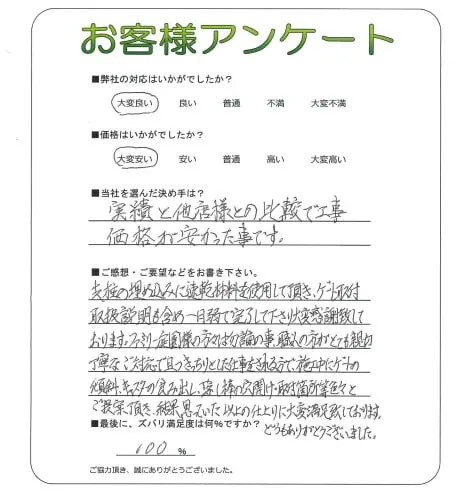 お客様アンケート
■弊社の対応はいかがでしたか?
大変良い 良い 普通 不満 大変不満
■価格はいかがでしたか?
大変安い 安い 普通 高い 大変高い
■当社を選んだ決め手は?
実績と他店様との比較で工事
価格が安かった事です。
■ご感想・ご要望などをお書き下さい。
支柱の埋め込みに速乾材料を使用して頂き、ゲート取付
取扱説明も含め一日弱で完了して下さり大変感謝致して
おります。ファミリー庭園様の方々は勿論の事、職人の方がとても親切
丁寧なご対応で且つきっちりとした仕事をされる方で、施工中にゲートの
傾斜、キャスターの食み出し、落し棒の穴開け・取付箇所等色々と
ご提案頂き、結果思っていた以上の仕上りに大変満足致しております。
どうもありがとうございました。
■最後に、ズバリ満足度は何%ですか?
100 %
ご協力頂き、誠にありがとうございました。